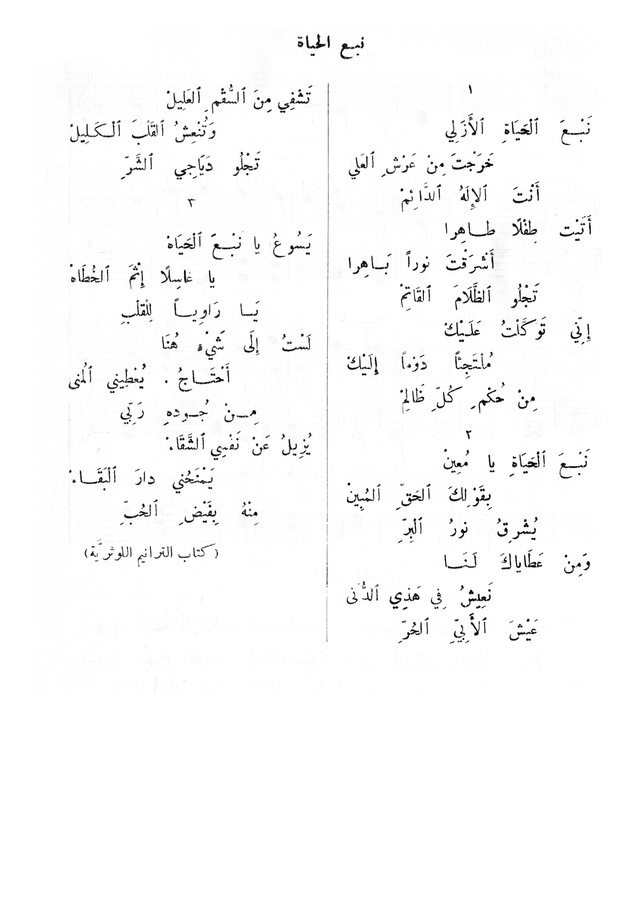 نبع الحياة
١
نَبْعَ ٱلْحَيَاةِ ٱلْأَزَلِي
خَرَجْتَ مِنْ عَرْشِ ٱلعَلِي
أَنْتَ ٱلإِلهُ ٱلدَّائِمْ
أَتَيْت طِفْلًا طَاهِرا
أَشْرَقْتَ نوراً بَاهِرا
تَجْلُو ٱلظَّلَامَ ٱلقَاتِمْ
إِنِّي تَوَكَّلْتُ عَلَيْكْ
مُلْتَجِئاً دَوْماً إِلَيْكْ
مِنْ حُكْمِ كُلِّ ظَالِمْ
٢
نَبْعَ ٱلْحَيَاةِ يا مُعِينْ
بِقَوْلِكَ ٱلحَقِّ ٱلمُبِينْ
يُشْرِقُ نورُ ٱلبِرِّ
وَمِنْ عَطَاياكَ لَنَا
نَعِيشُ فِي هَذِي ٱلدُّنَى
عَيْشَ ٱلأَبِيِّ ٱلحُرِّ
تَشْفِي مِنَ ٱلسُّقْمِ ٱلعَلِيلْ
وَتُنْعِشُ ٱلقَلْبَ ٱلْكَلِيلْ
تَجْلُو دَيَاجِي ٱلشَّرِّ
٣
يَسُوعُ يا نَبْعَ ٱلْحَيَاهْ
يا غاسِلًا إِثْمَ ٱلخُطَاهْ
يَا رَاوِياً لِلْقَلْبِ
لَسْتُ إِلَى شَيْءٍ هُنَا
أَحْتَاجُ . يُعْطِيني ٱلْمُنى
مِنْ جُودِهِ رَبِّي
يُزِيلُ عَنْ نَفْسِي ٱلشَّقَاءْ
يَمْنَحُني دارَ ٱلبَقَاءْ
مِنْهُ بِفَيْضِ ٱلحُبِّ
(كتاب الترانيم اللوثريَّة)